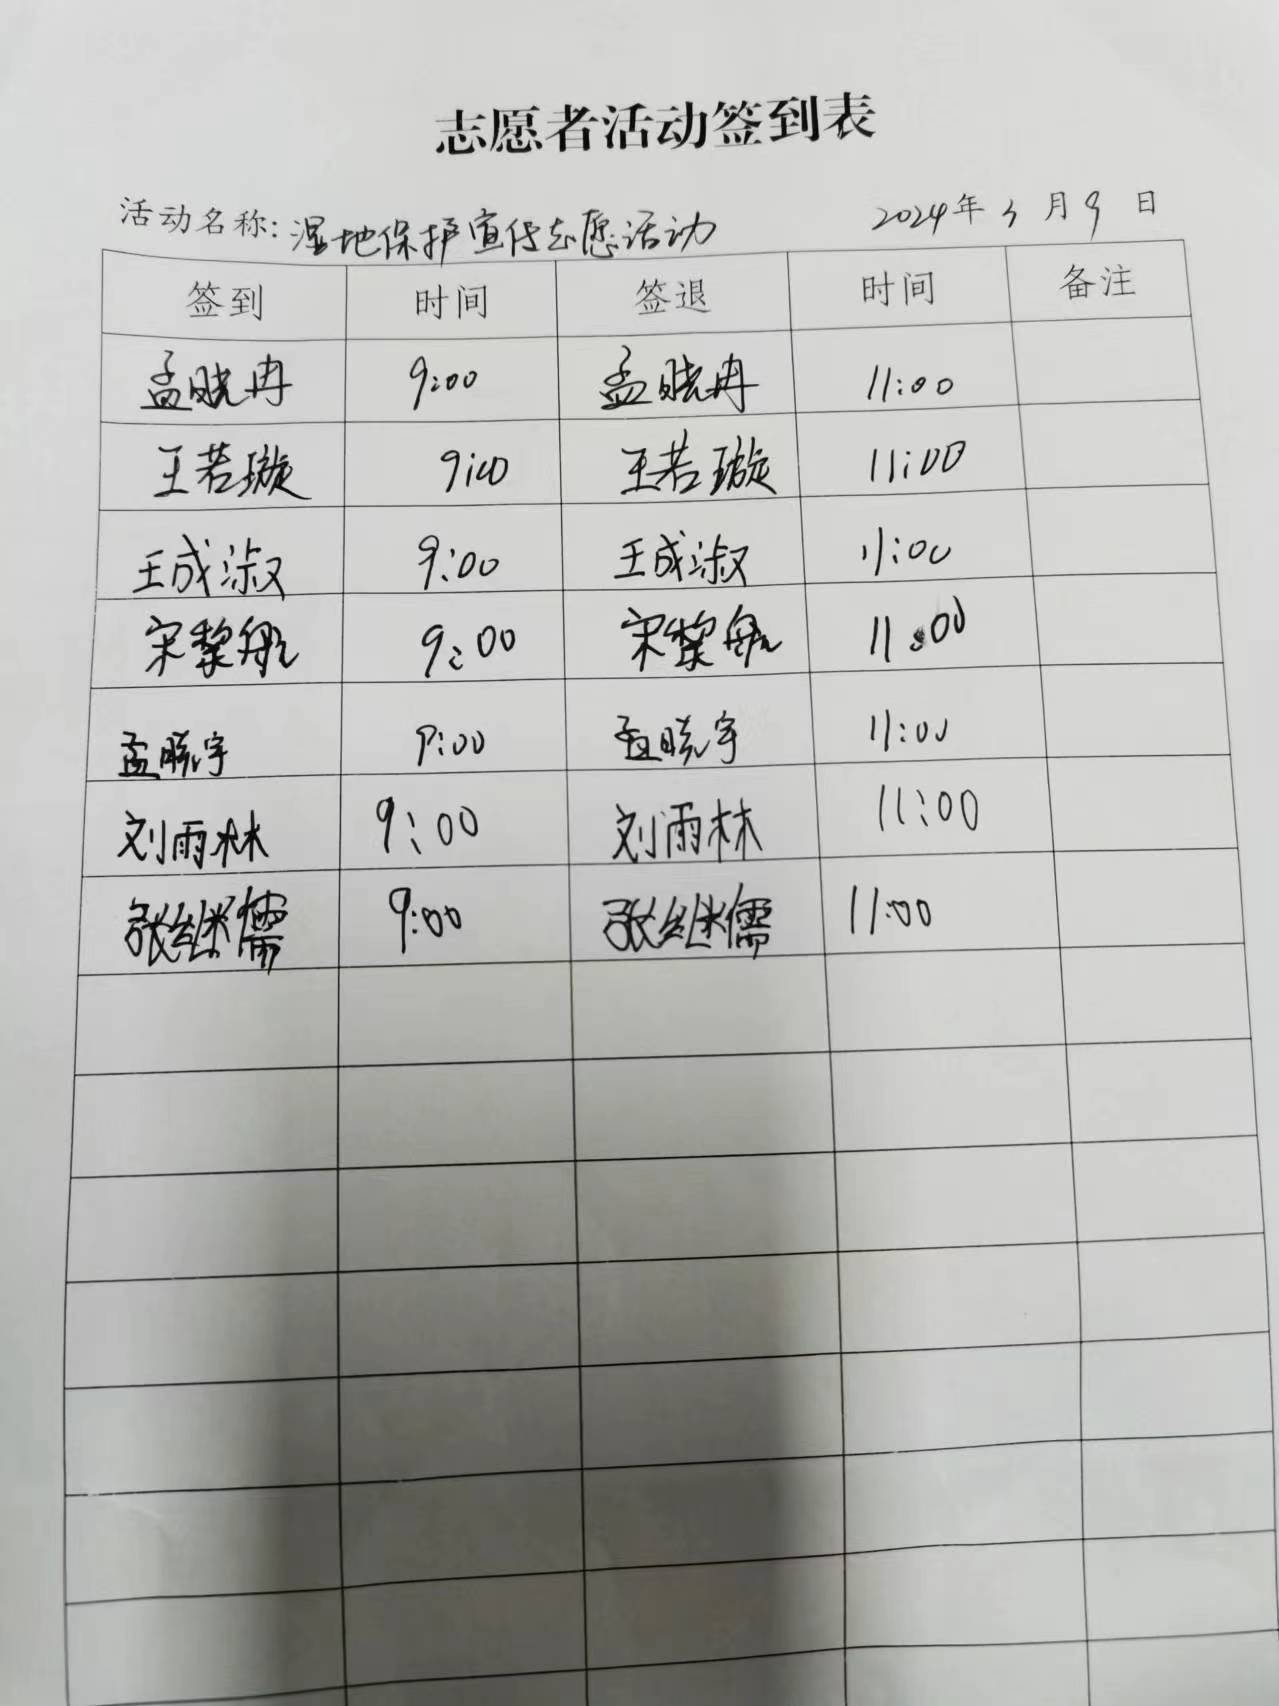 志愿者活动签到表
活动名称:湿地保护宣传志愿活动 2024年3月9日
签到 时间 签退 时间 备注
孟晓冉 9:00 孟晓冉 11:00
王若璇 9:00 王若璇 11:00
王成淑 9:00 王成淑 11:00
宋黎船 9:00 宋黎船 11:00
孟晓宇 9:00 孟晓宇 11:00
刘雨林 9:00 刘雨林 11:00
张继儒 9:00 张继儒 11:00